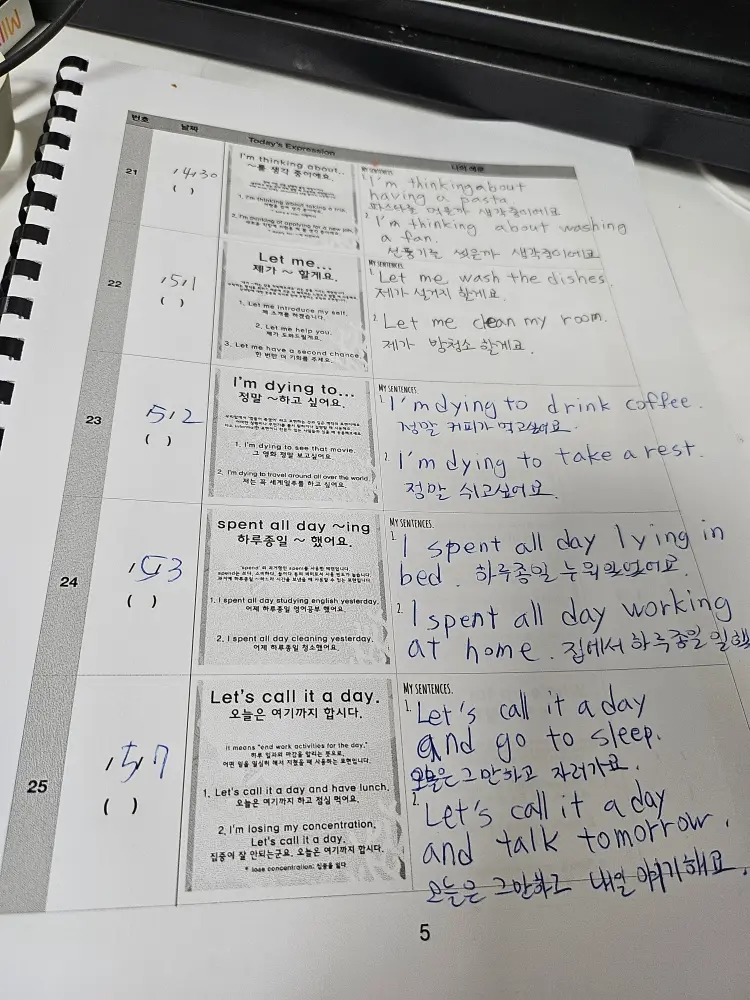 번호 날짜 Today's Expression 나의 예문
21
4/30
( )
I'm thinking about...
~를 생각 중이에요.
1. I'm thinking about taking a risk.
2. I'm thinking of applying for a new job.
MY SENTENCES.
1. I'm thinking about
having a pasta
파스타를 먹을까 생각중이에요
2. I'm thinking about washing
a fan.
선풍기를 씻을까 생각중이에요
22
5/1
( )
Let me...
제가 ~ 할게요.
1. Let me introduce my self.
제 소개를 하겠습니다.
2. Let me help you.
제가 도와드릴게요.
3. Let me have a second chance.
한 번만 더 기회를 주세요.
MY SENTENCES.
1. Let me wash the dishes.
제가 설거지 할게요.
2. Let me clean my room.
제가 방청소 할게요.
23
5/2
( )
I'm dying to...
정말 ~하고 싶어요.
1. I'm dying to see that movie.
그 영화 정말 보고싶어요.
2. I'm dying to travel around all over the world.
저는 꼭 세계일주를 하고 싶어요.
MY SENTENCES.
1. I'm dying to drink coffee.
정말 커피가 먹고싶어요.
2. I'm dying to take a rest.
정말 쉬고싶어요.
24
5/3
( )
spent all day ~ing
하루종일 ~ 했어요.
1. I spent all day studying english yesterday.
어제 하루종일 영어공부 했어요.
2. I spent all day cleaning yesterday.
어제 하루종일 청소했어요.
MY SENTENCES.
1. I spent all day lying in
bed. 하루종일 누워있었어요.
2. I spent all day working
at home. 집에서 하루종일 일했
25
5/7
( )
Let's call it a day.
오늘은 여기까지 합시다.
It means "end work activities for the day."
하루 일과의 마감을 알리는 뜻으로,
어떤 일을 열심히 해서 지쳤을 때 사용하는 표현입니다.
1. Let's call it a day and have lunch.
오늘은 여기까지 하고 점심 먹어요.
2. I'm losing my concentration.
Let's call it a day.
집중이 잘 안되는군요. 오늘은 여기까지 합시다.
* lose concentration: 집중을 잃다
MY SENTENCES.
1. Let's call it a day
and go to sleep.
오늘은 그만하고 자러가요.
2. Let's call it a day
and talk tomorrow.
오늘은 그만하고 내일 얘기해요.
5